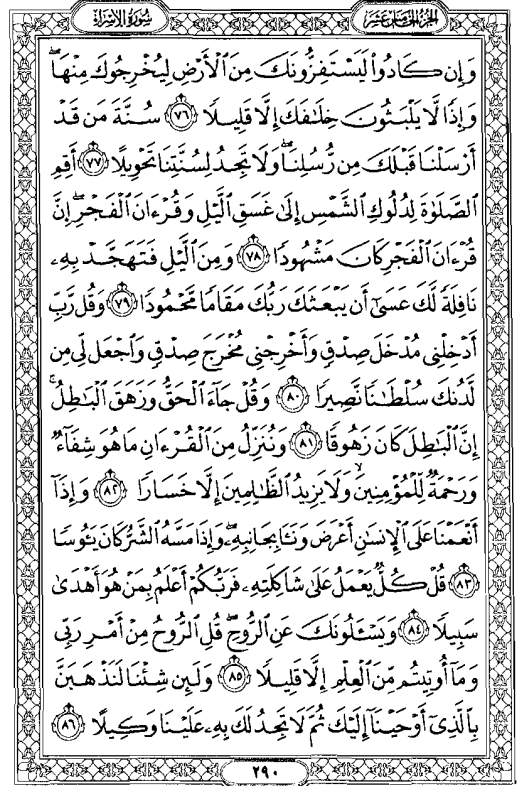 سُورَةُ الإِسْرَاءِ
الجُزْءُ الخَامِسَ عَشَرَ
وَإِن كَادُواْ لَيَسْتَفِزُّونَكَ مِنَ ٱلْأَرْضِ لِيُخْرِجُوكَ مِنْهَاۖ
وَإِذًا لَّا يَلْبَثُونَ خِلَٰفَكَ إِلَّا قَلِيلًا ﴿٧٦﴾ سُنَّةَ مَن قَدْ
أَرْسَلْنَا قَبْلَكَ مِن رُّسُلِنَاۖ وَلَا تَجِدُ لِسُنَّتِنَا تَحْوِيلًا ﴿٧٧﴾ أَقِمِ
ٱلصَّلَوٰةَ لِدُلُوكِ ٱلشَّمْسِ إِلَىٰ غَسَقِ ٱلَّيْلِ وَقُرْءَانَ ٱلْفَجْرِۖ إِنَّ
قُرْءَانَ ٱلْفَجْرِ كَانَ مَشْهُودًا ﴿٧٨﴾ وَمِنَ ٱلَّيْلِ فَتَهَجَّدْ بِهِۦ
نَافِلَةً لَّكَ عَسَىٰٓ أَن يَبْعَثَكَ رَبُّكَ مَقَامًا مَّحْمُودًا ﴿٧٩﴾ وَقُل رَّبِّ
أَدْخِلْنِى مُدْخَلَ صِدْقٍ وَأَخْرِجْنِى مُخْرَجَ صِدْقٍ وَٱجْعَل لِّى مِن
لَّدُنكَ سُلْطَٰنًا نَّصِيرًا ﴿٨٠﴾ وَقُلْ جَآءَ ٱلْحَقُّ وَزَهَقَ ٱلْبَٰطِلُۚ
إِنَّ ٱلْبَٰطِلَ كَانَ زَهُوقًا ﴿٨١﴾ وَنُنَزِّلُ مِنَ ٱلْقُرْءَانِ مَا هُوَ شِفَآءٌ
وَرَحْمَةٌ لِّلْمُؤْمِنِينَۙ وَلَا يَزِيدُ ٱلظَّٰلِمِينَ إِلَّا خَسَارًا ﴿٨٢﴾ وَإِذَآ
أَنْعَمْنَا عَلَى ٱلْإِنسَٰنِ أَعْرَضَ وَنَـَٔا بِجَانِبِهِۦۖ وَإِذَا مَسَّهُ ٱلشَّرُّ كَانَ يَـُٔوسًا
﴿٨٣﴾ قُلْ كُلٌّ يَعْمَلُ عَلَىٰ شَاكِلَتِهِۦ فَرَبُّكُمْ أَعْلَمُ بِمَنْ هُوَ أَهْدَىٰ
سَبِيلًا ﴿٨٤﴾ وَيَسْـَٔلُونَكَ عَنِ ٱلرُّوحِۖ قُلِ ٱلرُّوحُ مِنْ أَمْرِ رَبِّى
وَمَآ أُوتِيتُم مِّنَ ٱلْعِلْمِ إِلَّا قَلِيلًا ﴿٨٥﴾ وَلَئِن شِئْنَا لَنَذْهَبَنَّ
بِٱلَّذِىٓ أَوْحَيْنَآ إِلَيْكَ ثُمَّ لَا تَجِدُ لَكَ بِهِۦ عَلَيْنَا وَكِيلًا ﴿٨٦﴾
٢٩٠